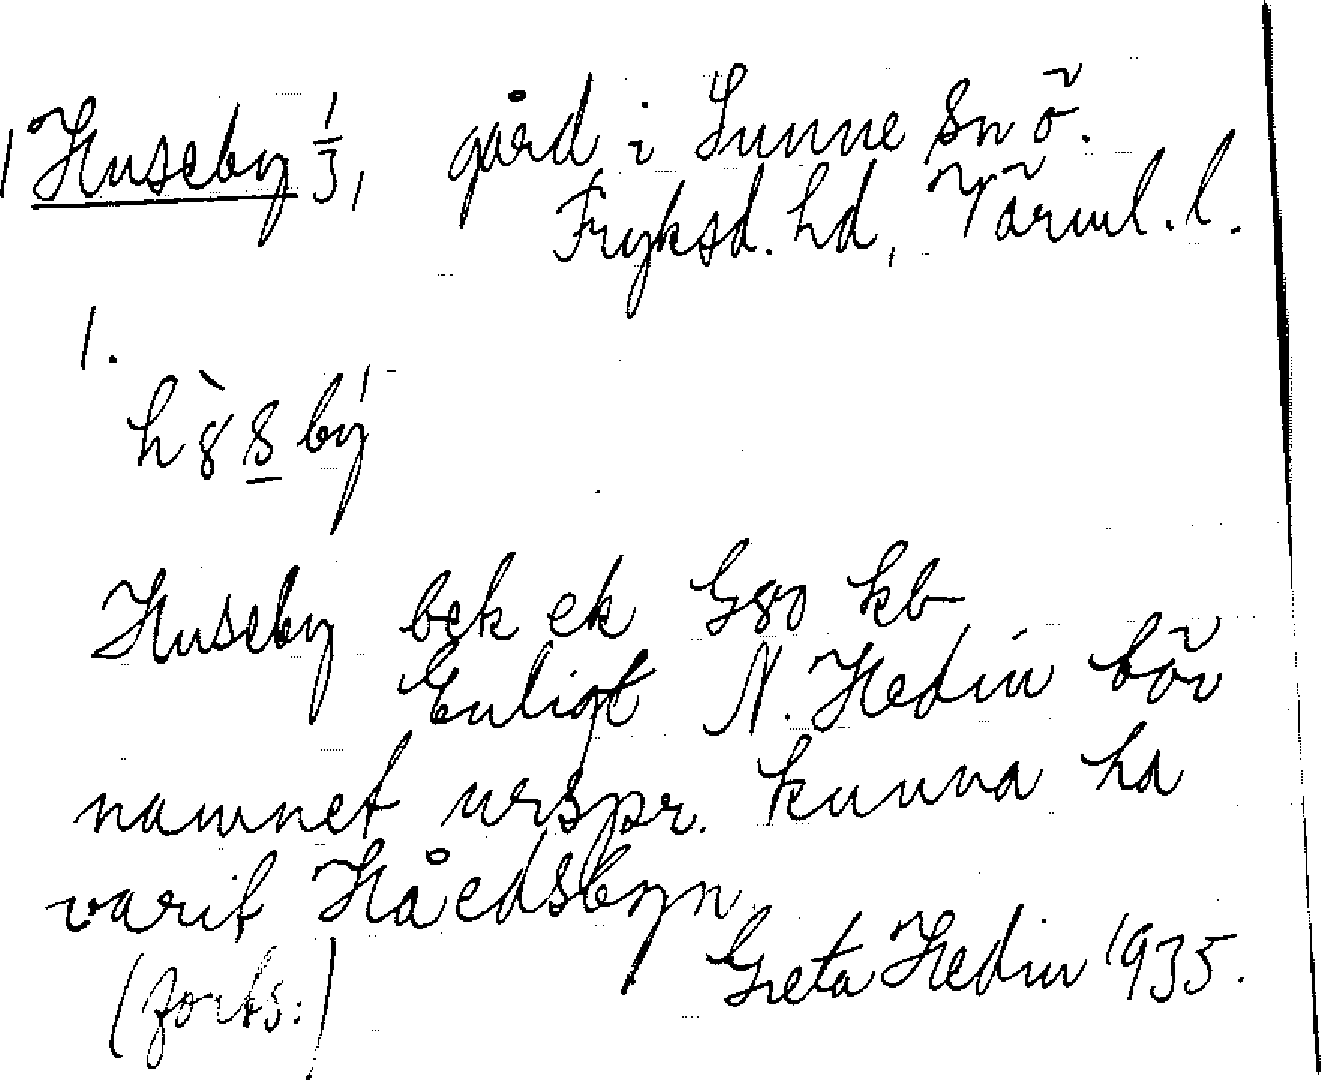 Huseby 1/3, gård i Sunne sn ö.
Fryksd. hd, Värml. l.
1.
Huseby bek ek G80 kb
Enligt N. Hedin bör
namnet urspr. kunna ha
varit Håedsbyn
Greta Hedin 1935.
(forts:)